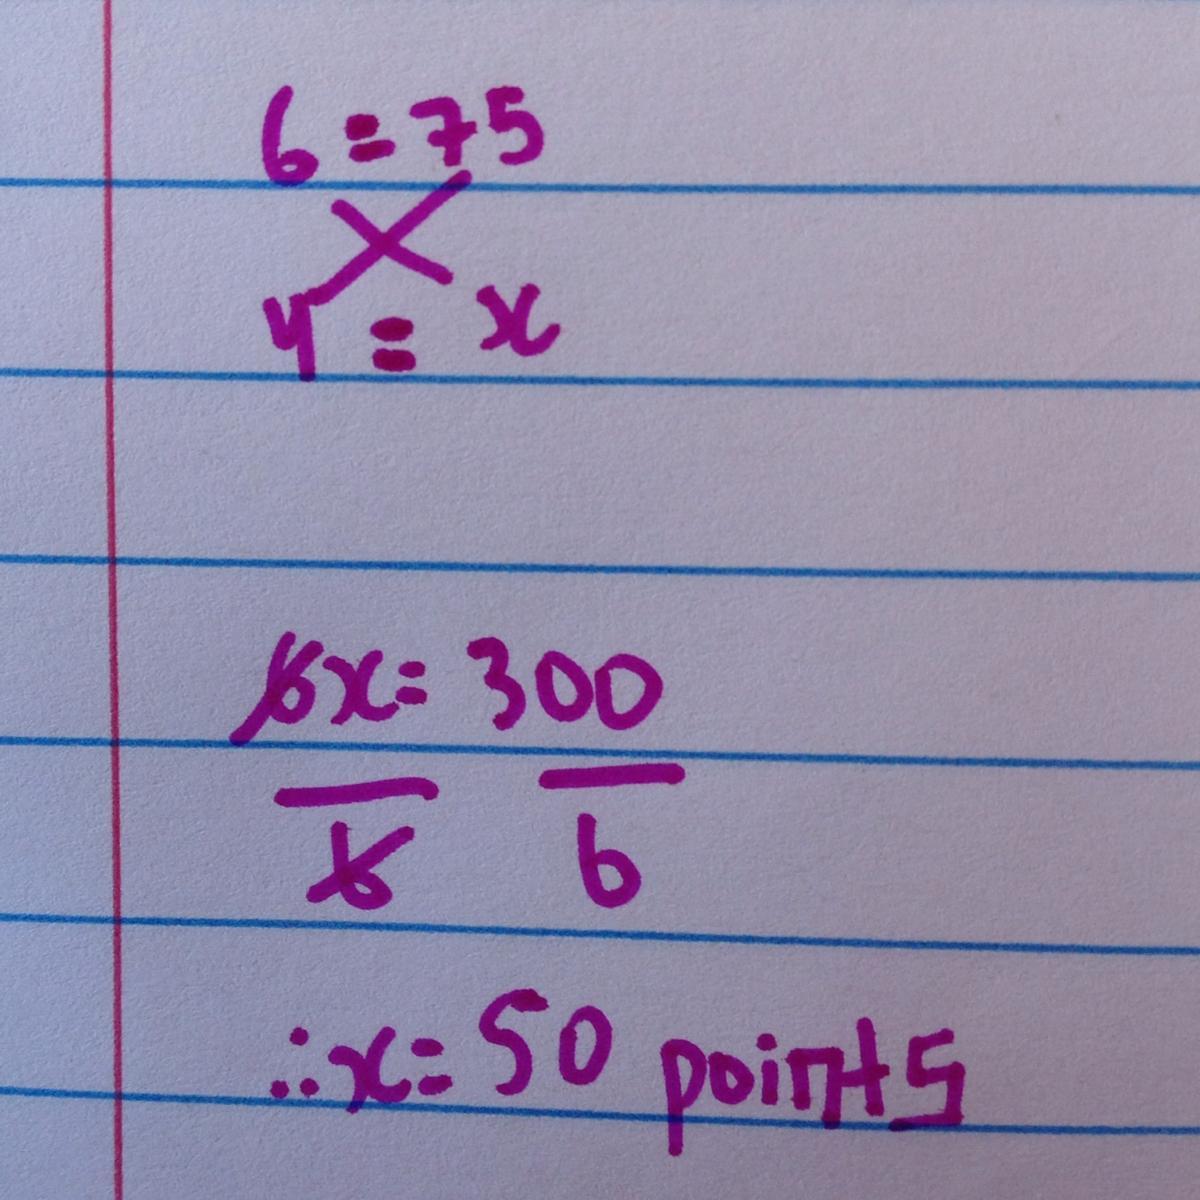 6 = 75
4 = x
6x = 300
6 6
∴x = 50 points